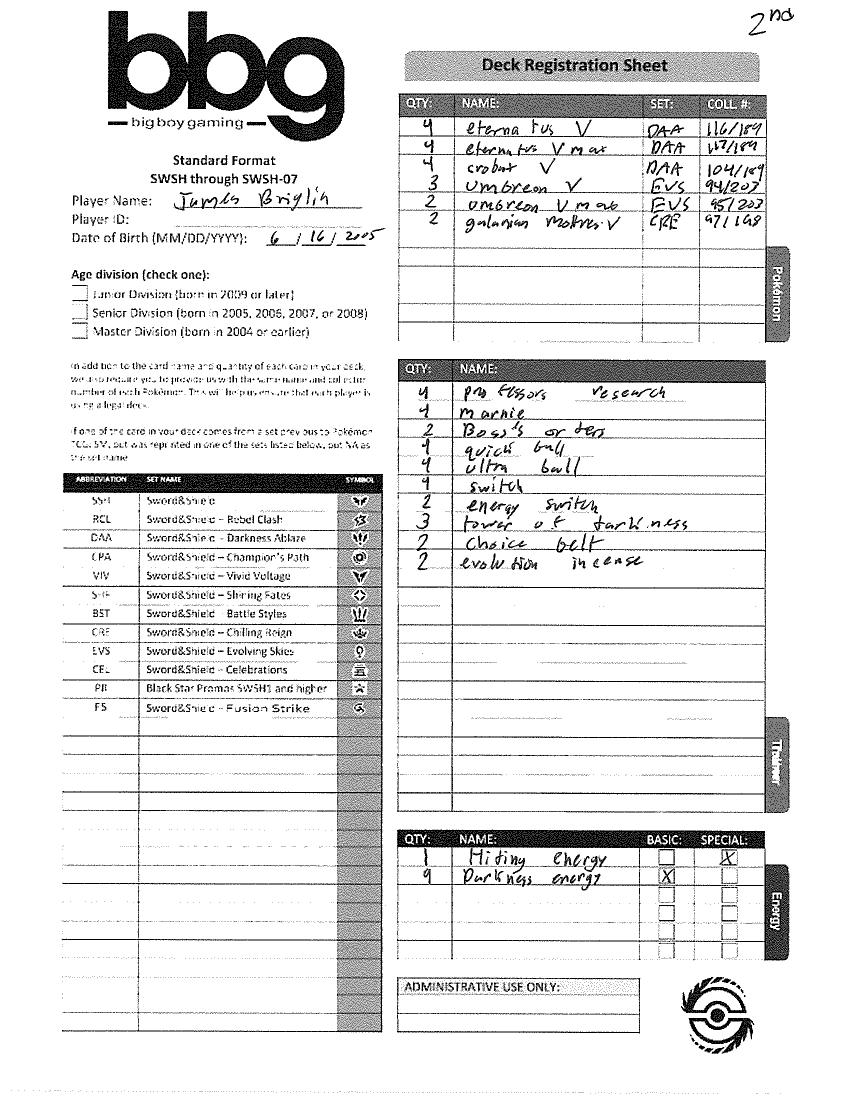 2nd
bbg
big boy gaming
Standard Format
SWSH through SWSH-07
Player Name: James Briglin
Player ID:
Date of Birth (MM/DD/YYYY): 6 / 16 / 2005
Age division (check one):
Junior Division (born in 2009 or later)
Senior Division (born in 2005, 2006, 2007, or 2008)
Master Division (born in 2004 or earlier)
In addition to the card name and quantity of each card in your deck,
we also require you to provide us with the same name and collector
number of each Pokémon. This will help us ensure that each player is
using a legal deck.
If one of the card in your deck comes from a set previous to Pokémon
TCG: SM, but was reprinted in one of the sets listed below, put NA as
the set name
ABBREVIATION SET NAME SYMBOL
SSH Sword&Shield
RCL Sword&Shield – Rebel Clash
DAA Sword&Shield - Darkness Ablaze
CPA Sword&Shield – Champion's Path
VIV Sword&Shield – Vivid Voltage
SHF Sword&Shield – Shining Fates
BST Sword&Shield - Battle Styles
CRE Sword&Shield – Chilling Reign
EVS Sword&Shield – Evolving Skies
CEL Sword&Shield – Celebrations
PR Black Star Promos SWSH1 and higher
FS Sword&Shield - Fusion Strike
Deck Registration Sheet
QTY: NAME: SET: COLL #:
4 eternatus V DAA 116/189
4 eternatus V max DAA 117/189
4 crobat V DAA 104/189
3 umbreon V EVS 94/203
2 umbreon V max EVS 95/203
2 galarian moltres V CRE 97/198
Pokémon
QTY: NAME:
4 professors research
4 marnie
2 Boss's orders
4 quick ball
4 ultra ball
4 switch
2 energy switch
3 tower of darkness
2 Choice belt
2 evolution incense
Trainer
QTY: NAME: BASIC: SPECIAL:
1 Hiding energy X
9 Darkness energy X
Energy
ADMINISTRATIVE USE ONLY: